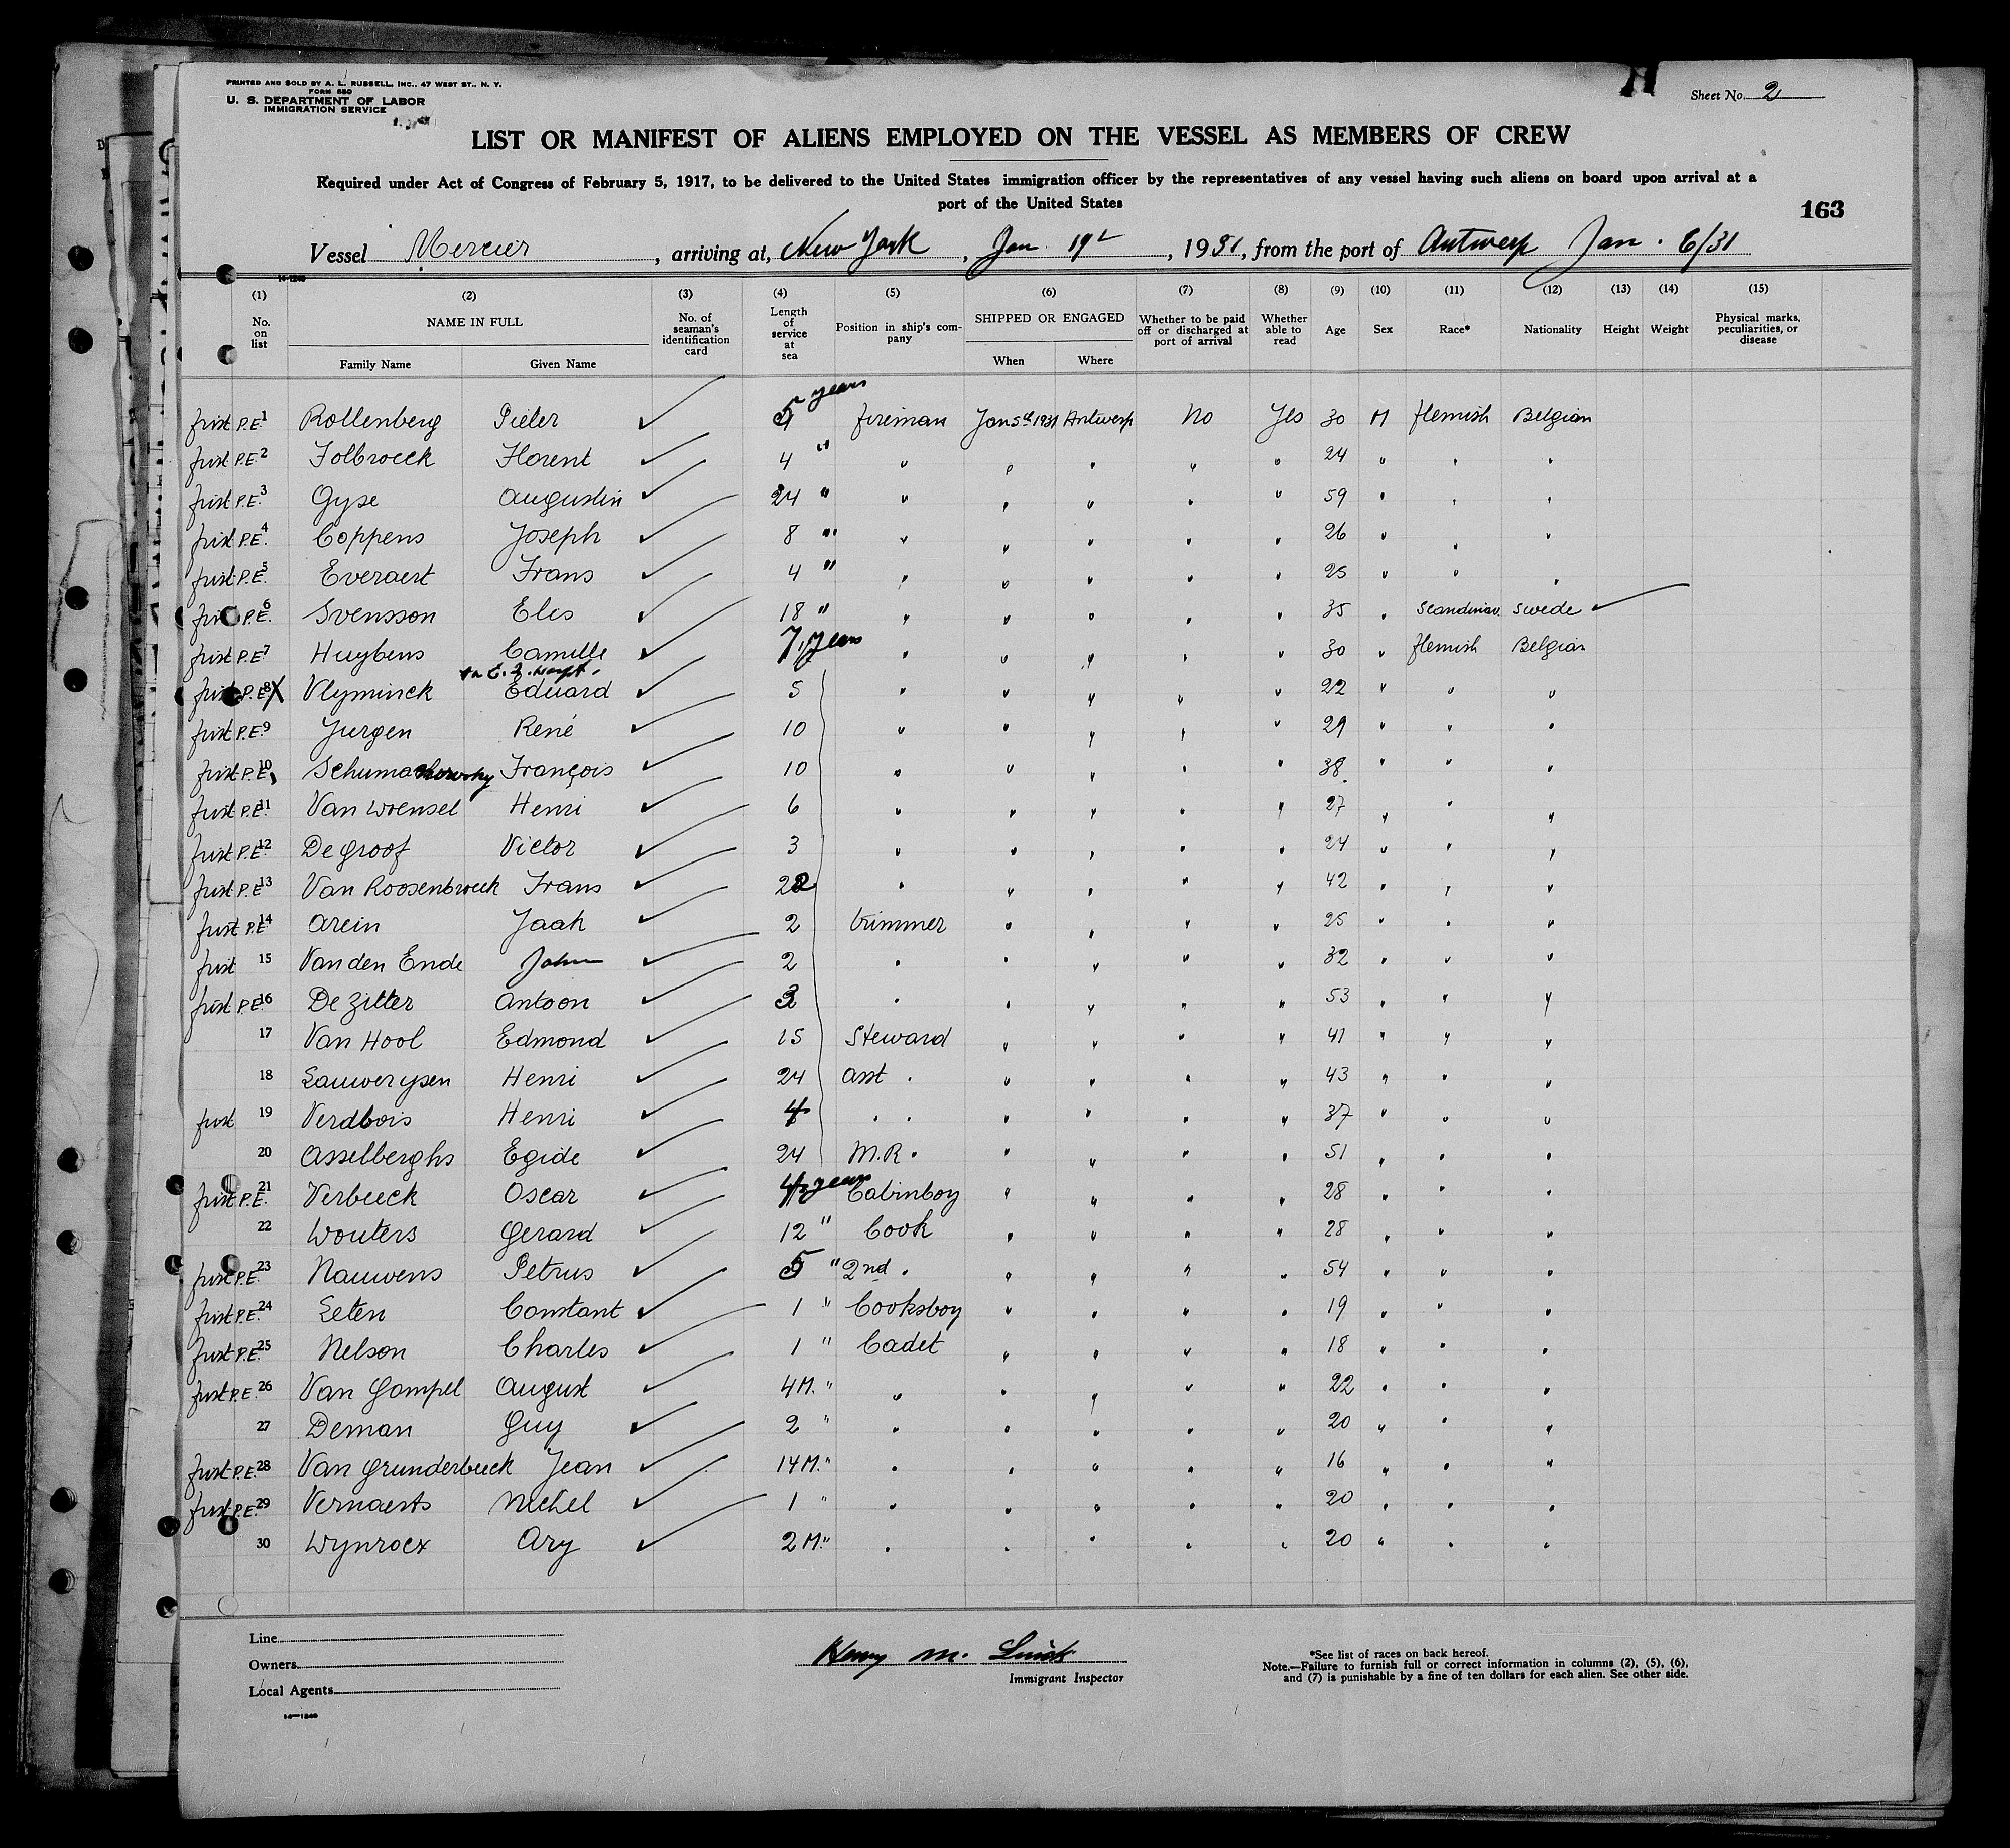 PRINTED AND SOLD BY A. L. RUSSELL, INC., 47 WEST ST., N. Y.
FORM 680
U. S. DEPARTMENT OF LABOR
IMMIGRATION SERVICE
Sheet No. 2
LIST OR MANIFEST OF ALIENS EMPLOYED ON THE VESSEL AS MEMBERS OF CREW
Required under Act of Congress of February 5, 1917, to be delivered to the United States immigration officer by the representatives of any vessel having such aliens on board upon arrival at a
port of the United States
163
Vessel Mercier, arriving at, New York, Jan. 19th, 1931, from the port of Antwerp Jan. 6/31
14-1240
(1) (2) (3) (4) (5) (6) (7) (8) (9) (10) (11) (12) (13) (14) (15)
No. on list NAME IN FULL Family Name Given Name No. of seaman's identification card Length of service at sea Position in ship's company SHIPPED OR ENGAGED When Where Whether to be paid off or discharged at port of arrival Whether able to read Age Sex Race* Nationality Height Weight Physical marks, peculiarities, or disease
first P.E. 1 Rollenberg Pieter ✓ 5 years fireman Jan 5th 1931 Antwerp No Yes 30 M flemish Belgian
first P.E. 2 Folbroeck Florent ✓ 4 " " " " " " 24 " " "
first P.E. 3 Gyse Augustin ✓ 24 " " " " " " 59 " " "
first P.E. 4 Coppens Joseph ✓ 8 " " " " " " 26 " " "
first P.E. 5 Everaert Frans ✓ 4 " " " " " " 25 " " "
first P.E. 6 Svensson Eles ✓ 18 " " " " " " 35 " Scandinav. Swede ✓
first P.E. 7 Huybens Camille ✓ 7 years " " " " " 30 " flemish Belgian
first P.E. 8 X Vlyminck Eduard ✓ 5 " " " " " 22 " " "
first P.E. 9 Jurgen René ✓ 10 " " " " " 29 " " "
first P.E. 10 François ✓ 10 " " " " " 38 " " "
first P.E. 11 Van Woensel Henri ✓ 6 " " " " " 27 " " "
first P.E. 12 De Groof Victor ✓ 3 " " " " " 24 " " "
first P.E. 13 Van Roosenbroeck Frans ✓ 22 " " " " " 42 " " "
first P.E. 14 Arein Jaak ✓ 2 trimmer " " " " 25 " " "
first 15 Van den Ende John ✓ 2 " " " " " 32 " " "
first P.E. 16 De Zitter Antoon ✓ 3 " " " " " 53 " " "
17 Van Hool Edmond ✓ 15 Steward " " " " 41 " " "
18 Lauwerysen Henri ✓ 24 asst " " " " " 43 " " "
first 19 Verdbois Henri ✓ 4 " " " " " " 37 " " "
20 Asselberghs Egide ✓ 24 M.R. " " " " 51 " " "
first P.E. 21 Verbeeck Oscar ✓ years Cabinboy " " " " 28 " " "
22 Wouters Gerard ✓ 12 " Cook " " " " 28 " " "
first P.E. 23 Nauwens Petrus ✓ 5 " 2nd " " " " " 54 " " "
first P.E. 24 Leten Constant ✓ 1 " Cooksboy " " " " 19 " " "
first P.E. 25 Nelson Charles ✓ 1 " Cadet " " " " 18 " " "
first P.E. 26 Van Gompel August ✓ 4 M. " " " " " " 22 " " "
27 Deman Guy ✓ 2 " " " " " " 20 " " "
first P.E. 28 Van Grunderbeeck Jean ✓ 14 M. " " " " " " 16 " " "
first P.E. 29 Vernaerts Michel ✓ 1 " " " " " " 20 " " "
30 Wynrocx Ary ✓ 2 M. " " " " " " 20 " " "
Line
Owners
Local Agents
14-1240
Henry M.
Immigrant Inspector
*See list of races on back hereof.
Note.—Failure to furnish full or correct information in columns (2), (5), (6),
and (7) is punishable by a fine of ten dollars for each alien. See other side.